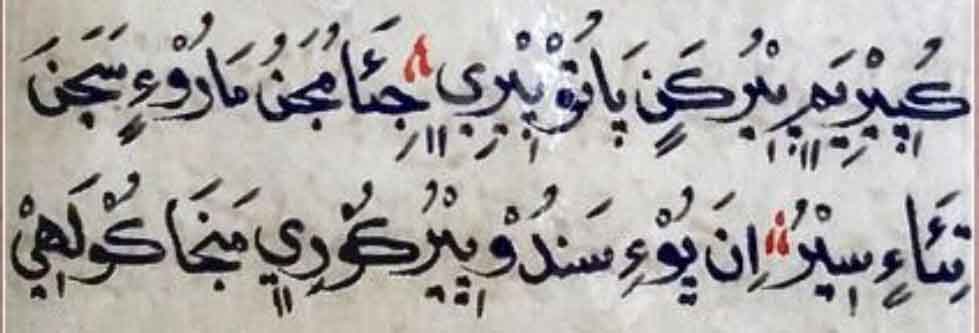 كُبِيْرِيَمِ بِيْرُ كَنِ يَاتَوْ بِيْرِي جِئَامُجَنُ مَارُوْءٍ سَجَنَ
تِئَاءٍ سِيْرُ اِنَ يُوْءِ سَنْدُوْ بِيْرُ كُوْرِي مَنْجَا كُوْلَهِيْ